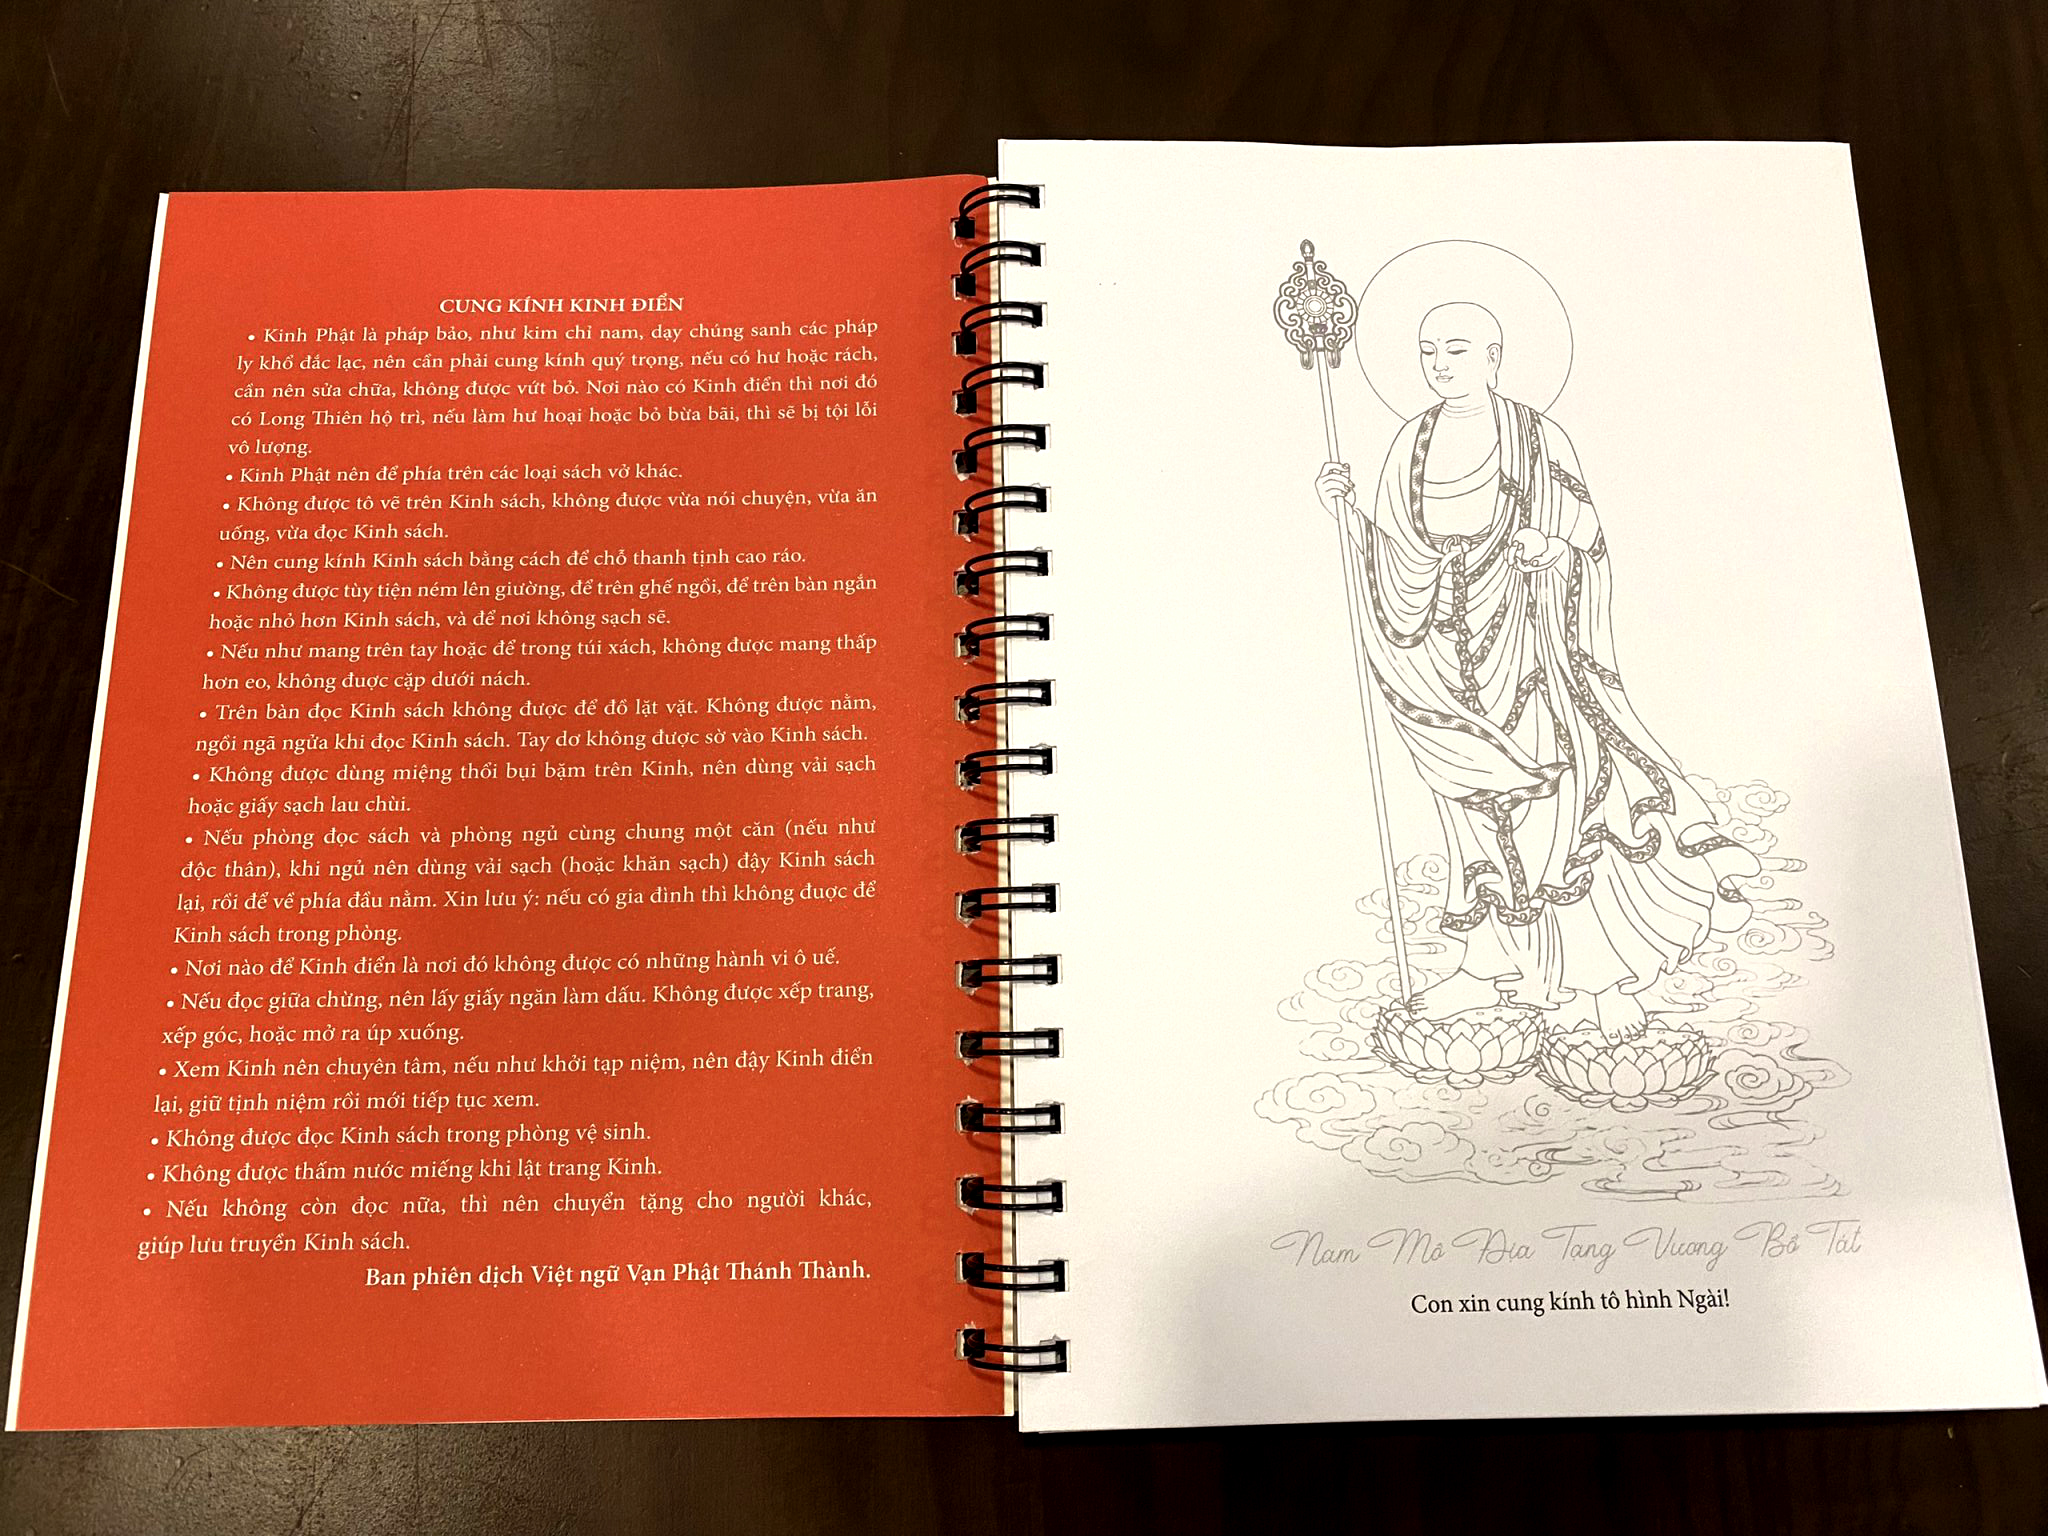 CUNG KÍNH KINH ĐIỂN
• Kinh Phật là pháp bảo, như kim chỉ nam, dạy chúng sanh các pháp
ly khổ đắc lạc, nên cần phải cung kính quý trọng, nếu có hư hoặc rách,
cần nên sửa chữa, không được vứt bỏ. Nơi nào có Kinh điển thì nơi đó
có Long Thiên hộ trì, nếu làm hư hoại hoặc bỏ bừa bãi, thì sẽ bị tội lỗi
vô lượng.
• Kinh Phật nên để phía trên các loại sách vở khác.
• Không được tô vẽ trên Kinh sách, không được vừa nói chuyện, vừa ăn
uống, vừa đọc Kinh sách.
• Nên cung kính Kinh sách bằng cách để chỗ thanh tịnh cao ráo.
• Không được tùy tiện ném lên giường, để trên ghế ngồi, để trên bàn ngắn
hoặc nhỏ hơn Kinh sách, và để nơi không sạch sẽ.
• Nếu như mang trên tay hoặc để trong túi xách, không được mang thấp
hơn eo, không đuợc cặp dưới nách.
• Trên bàn đọc Kinh sách không được để đồ lặt vặt. Không được nằm,
ngồi ngã ngửa khi đọc Kinh sách. Tay dơ không được sờ vào Kinh sách.
• Không được dùng miệng thổi bụi bặm trên Kinh, nên dùng vải sạch
hoặc giấy sạch lau chùi.
• Nếu phòng đọc sách và phòng ngủ cùng chung một căn (nếu như
độc thân), khi ngủ nên dùng vải sạch (hoặc khăn sạch) đậy Kinh sách
lại, rồi để về phía đầu nằm. Xin lưu ý: nếu có gia đình thì không đuợc để
Kinh sách trong phòng.
• Nơi nào để Kinh điển là nơi đó không được có những hành vi ô uế.
• Nếu đọc giữa chừng, nên lấy giấy ngăn làm dấu. Không được xếp trang,
xếp góc, hoặc mở ra úp xuống.
• Xem Kinh nên chuyên tâm, nếu như khởi tạp niệm, nên đậy Kinh điển
lại, giữ tịnh niệm rồi mới tiếp tục xem.
• Không được đọc Kinh sách trong phòng vệ sinh.
• Không được thấm nước miếng khi lật trang Kinh.
• Nếu không còn đọc nữa, thì nên chuyển tặng cho người khác,
giúp lưu truyền Kinh sách.
Ban phiên dịch Việt ngữ Vạn Phật Thánh Thành.
Nam Mô Địa Tạng Vương Bồ Tát
Con xin cung kính tô hình Ngài!